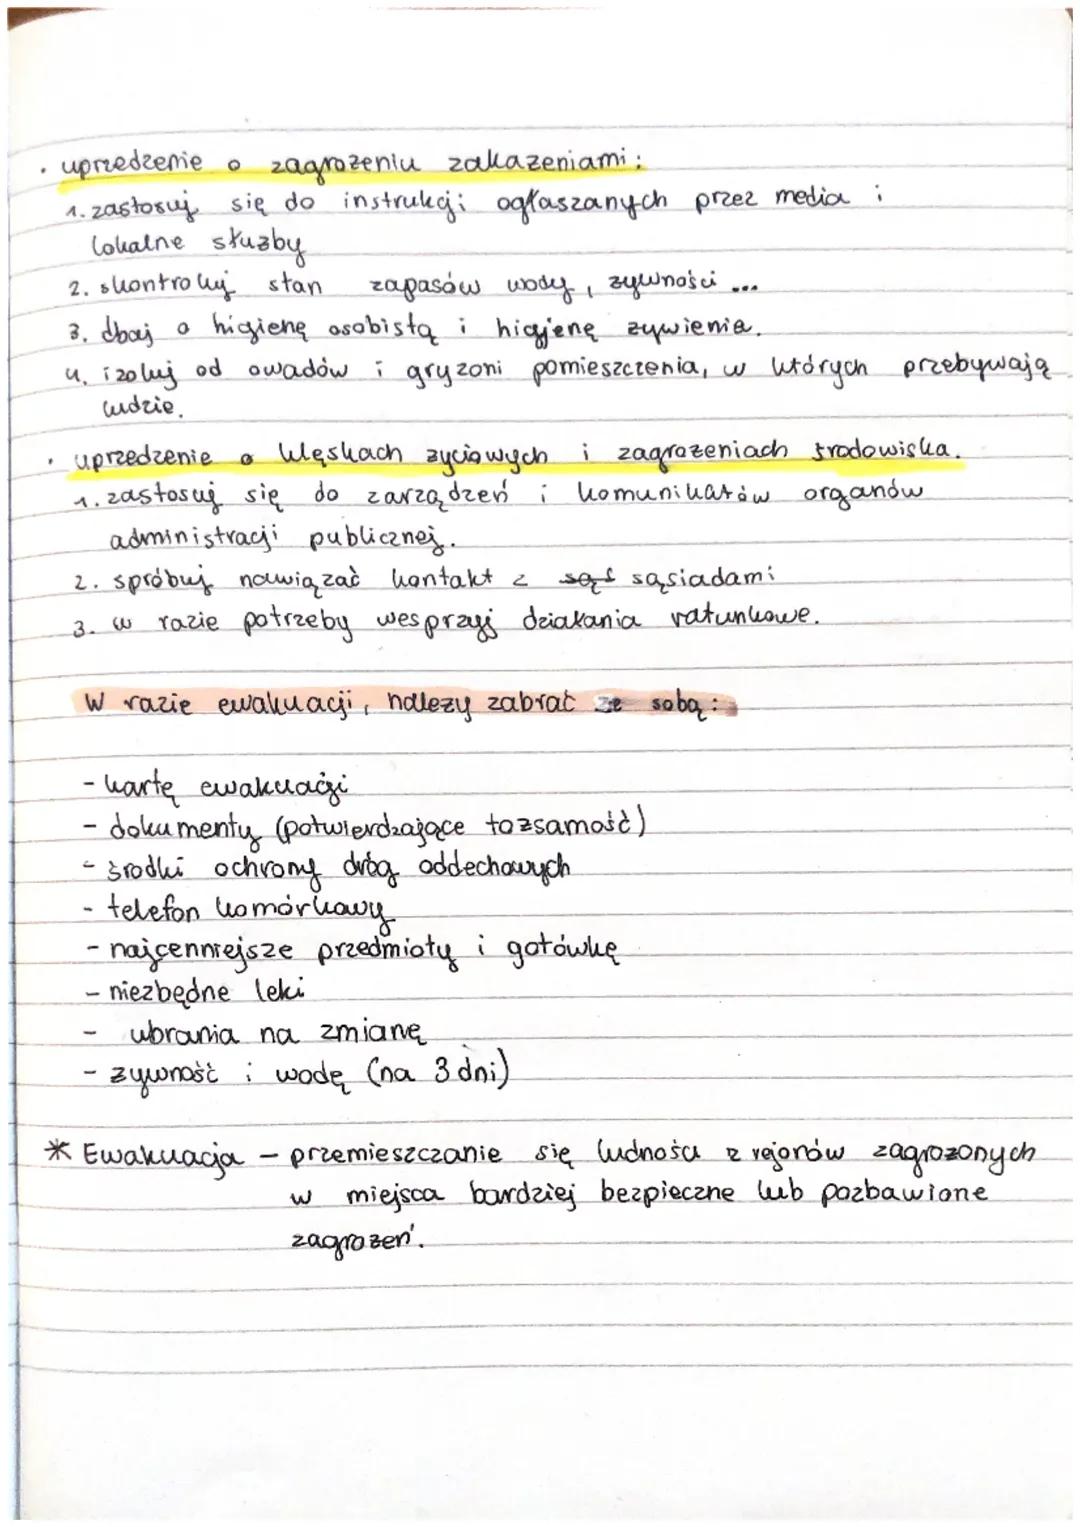 • uprzedzenie o zagrożeniu zakażeniami:
1. zastosuj się do instrukcji ogłaszanych przez media i
lokalne służby
2. skontroluj stan zapasów wody, żywności...
3. dbaj o higienę osobistą i higjenę żywienia.
4. izoluj od owadów i gryzoni pomieszczenia, w których przebywają
ludzie.
• uprzedzenie o klęskach życiowych i zagrożeniach środowiska.
1. zastosuj się do zarządzeń i komunikatów organów
administracji publicznej.
2. spróbuj nawiązać kontakt z sąsiadami
3. w razie potrzeby wesprzyj działania ratunkowe.
W razie ewakuacji, należy zabrać ze sobą:
- kartę ewakuacji
- dokumenty (potwierdzające tożsamość)
- środki ochrony dróg oddechowych
- telefon komórkowy
- najcenniejsze przedmioty i gotówkę
- niezbędne leki
- ubrania na zmianę
- żywność i wodę (na 3 dni)
* Ewakuacja – przemieszczanie się ludności z rejonów zagrożonych
w miejsca bardziej bezpieczne lub pozbawione
zagrożeń.